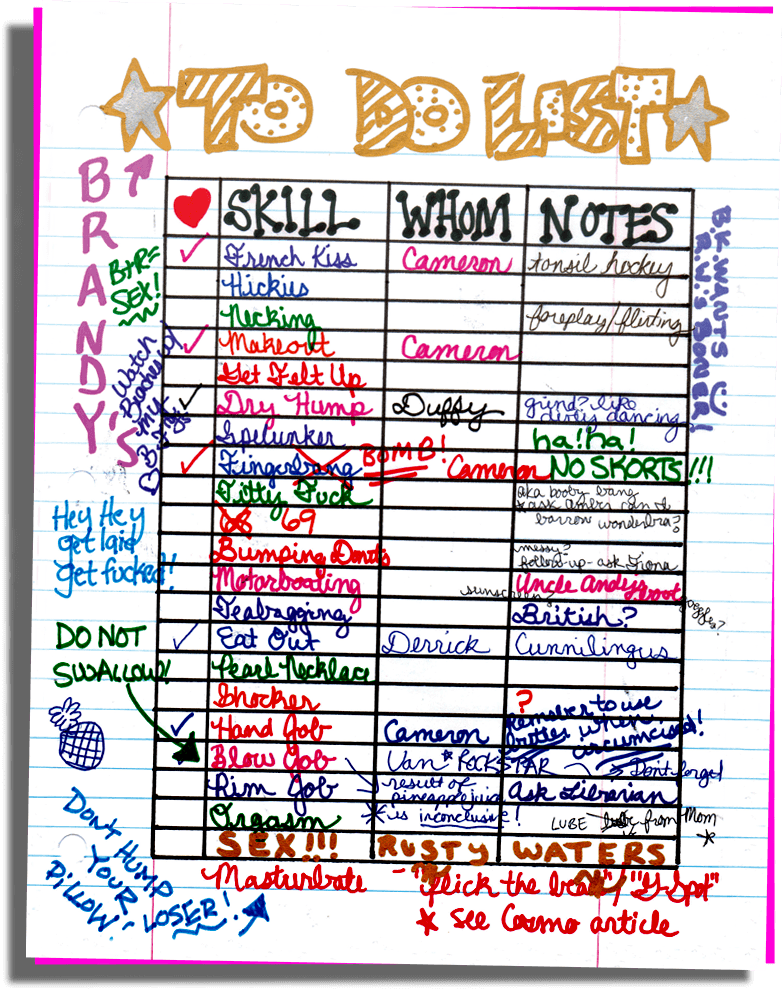 TO DO LIST
BRANDY'S
SKILL WHOM NOTES
✓ French Kiss Cameron tonsil hockey
Hickies
Necking foreplay/flirting
✓ Makeout Cameron
Get Felt Up
✓ Dry Hump Duffy grind? like
dirty dancing
Spelunker ha! ha!
✓ Fingerbang BOMB! Cameron NO SKORTS!!!
Titty Fuck aka booby bang
* ask Amber can I
borrow wonderbra?
69
Bumping Donuts messy?
follow-up - ask Fiona
Motorboating sunscreen, Uncle Andy's boot goggles?
Teabagging British?
✓ Eat Out Derrick Cunnilingus
Pearl Necklace
Shocker ?
✓ Hand Job Cameron Remember to use
butter when
circumcised!
✓ Blow Job Van * ROCKSTAR Don't forget
Rim Job result of
pineapple juice
* is inconclusive! Ask Librarian
Orgasm LUBE from Mom
*
SEX!!! RUSTY WATERS
Masturbate - "flick the bean"/"G-Spot"
* see Cosmo article
B+R=
SEX!
Watch
Beaches w/
my
B.F.F.s
Hey Hey
get laid
get fucked!!
DO NOT
SWALLOW!
DON'T HUMP
YOUR
PILLOW, LOSER!
B.K. WANTS
R.W.'S BONER!